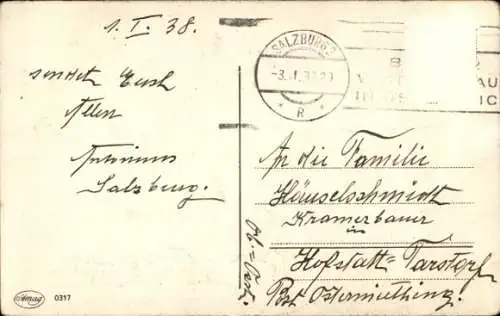 1. I. 38.
sendet Euch
Allen
Antonius
Salzburg.
SALZBURG 2
-3. I. 38 20
* R *
B
W AU
IN ÖS ICH
An die Familie
Häuselschmidt
Kramerbauer
in
Hofstatt-Tarstorf
Post Ostermiething.
Ob.=Öst.
Amag 0317